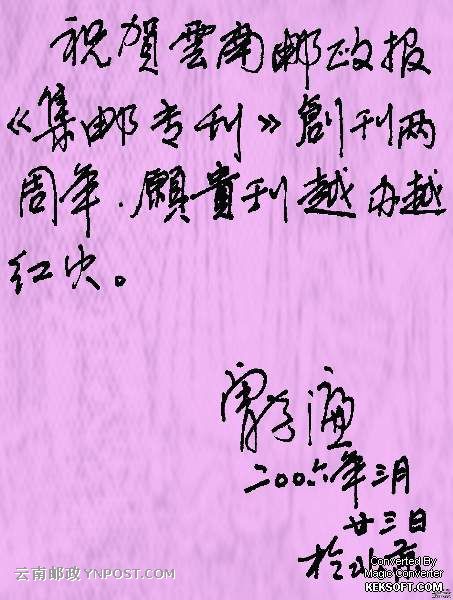 祝賀雲南邮政报
《集邮专刊》創刊两
周年.願貴刊越办越
红火。
二00六年三月
廿三日
於北京
云南邮政 YNPOST.COM
Converted By
Magic Converter
KEKSOFT.COM